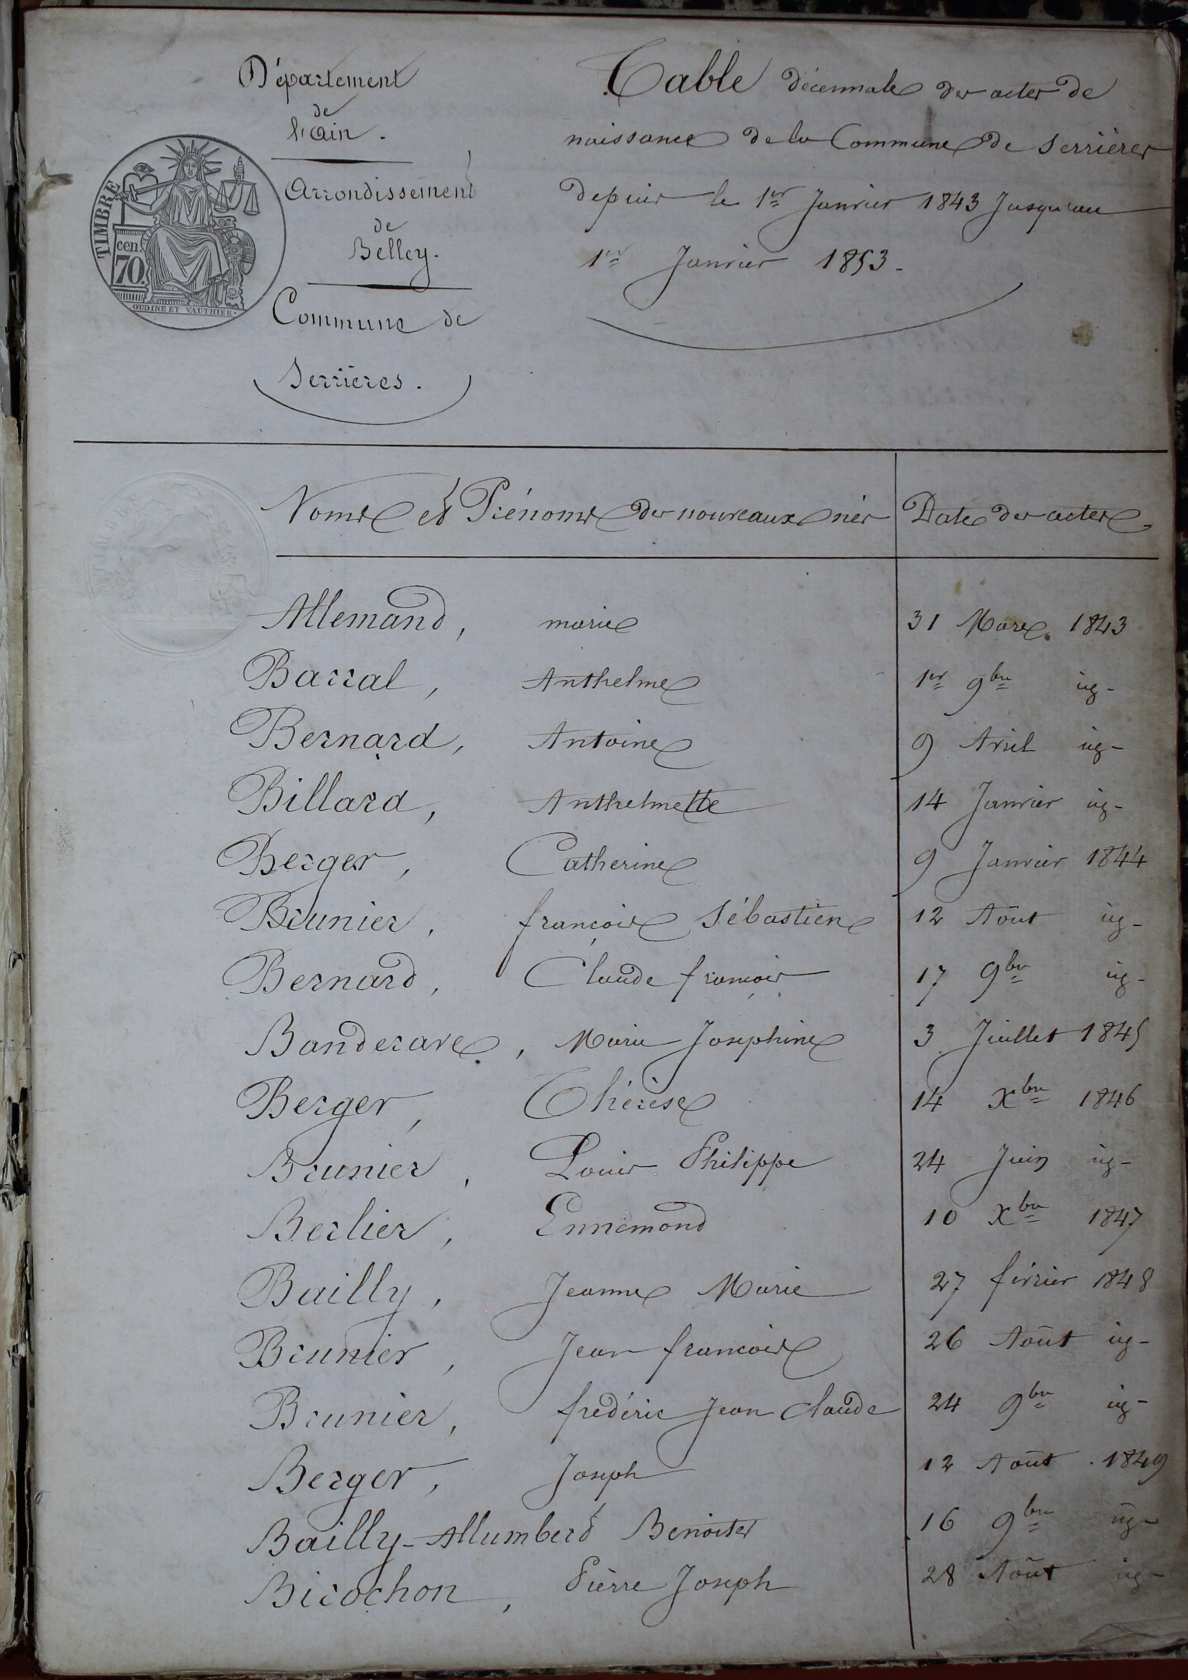 Département
de
l'Ain.
Arrondissement
de
Belley.
Commune de
Serrières.
TIMBRE
cen
70.
OUDINE ET VAUTHIER.
Table décennale des actes de
naissance de la Commune de Serrières
depuis le 1er Janvier 1843 Jusqu'au
1er Janvier 1853.
Noms et Prénoms des nouveaux nés Date des actes
Allemand, marie 31 Mars 1843
Barral, Anthelme 1er 9bre id-
Bernard, Antoine 9 Avril id-
Billard, Anthelmette 14 Janvier id-
Berger, Catherine 9 Janvier 1844
Brunier, françois Sébastien 12 Août id-
Bernard, Claude françois 17 9bre id-
Banderave, Marie Josephine 3 Juillet 1845
Berger, Thérèse 14 Xbre 1846
Brunier, Louis Philippe 24 Juin id-
Berlier, Ennemond 10 Xbre 1847
Bailly, Jeanne Marie 27 février 1848
Brunier, Jean françois 26 Août id-
Brunier, frédéric Jean Claude 24 9bre id-
Berger, Joseph 12 Août 1849
Bailly-Allumberd Benoite 16 9bre id-
Birochon, Pièrre Joseph 28 Août id-